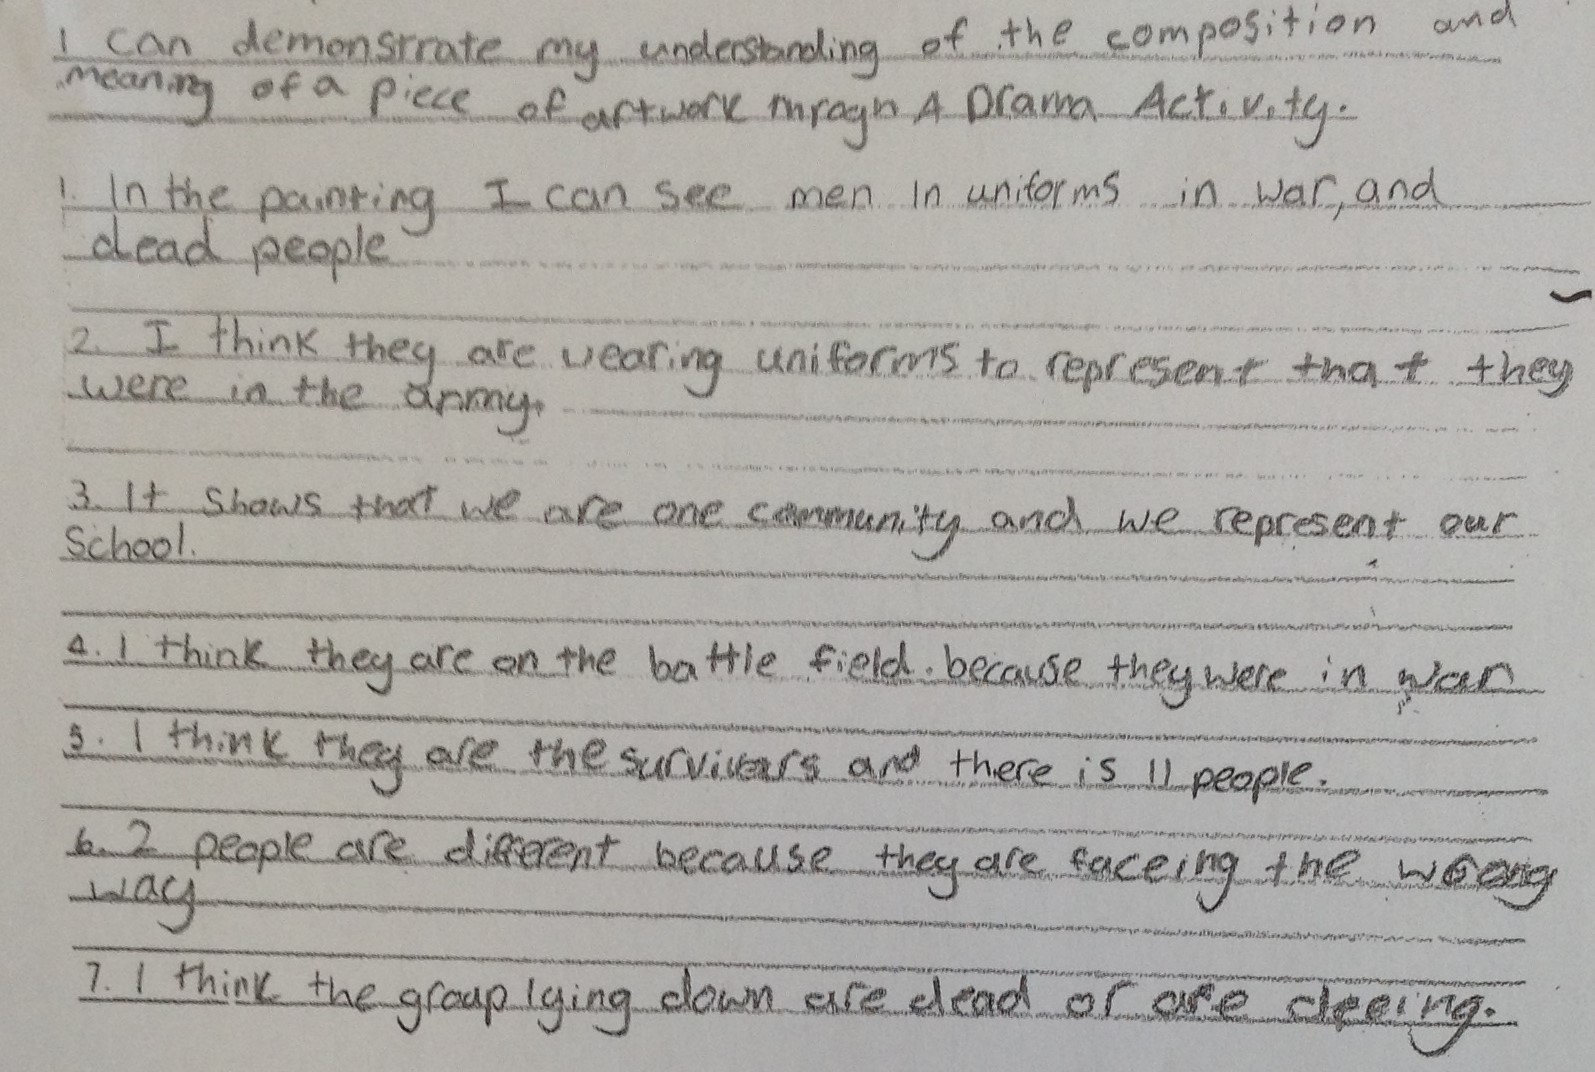 I can demonstrate my understanding of the composition and
meaning of a piece of artwork throgh A Drama Activity.
1. In the painting I can see men in uniforms in war, and
dead people
2. I think they are wearing uniforms to represent that they
were in the army.
3. It shows that we are one community and we represent our
School.
4. I think they are on the battle field. because they were in war
5. I think they are the survivers and there is 11 people.
6. 2 people are different because they are faceing the wrong
way
7. I think the group lying down are dead or are deeing.